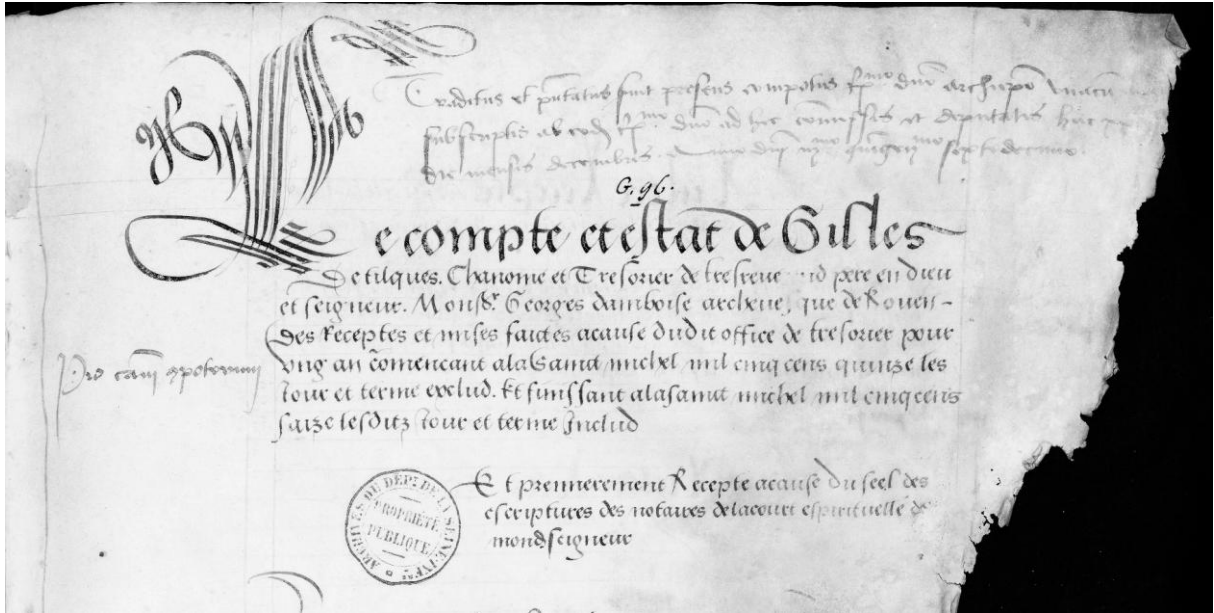 Traditus et pntatus fuit presens compotus Rmo dno archiepo
subscriptis ab eod Rmo dno ad hec commissis et deputatis hac
die mensis decembris. Anno dni mmo quingenmo septedecimo.
G. 96.
Le compte et estat de Gilles
De tilques. Chanoine et Tresorier de tresreue nd pere en dieu
et seigneur. Monsr. Georges damboise archeuesque de Rouen
des Receptes et mises faictes acause dudit office de tresorier pour
ung an comencant alasainct michel mil cinq cens quinze les
iour et terme exclud. Et finissant alasainct michel mil cinq cens
saize lesditz iour et terme Includ
Pro cam compotorum
Et premierement Recepte acause du seel des
escriptures des notaires delacourt espirituelle de
mondseigneur
ARCHIVES DU DÉPT DE LA SEINE-INFRE
PROPRIÉTÉ
PUBLIQUE